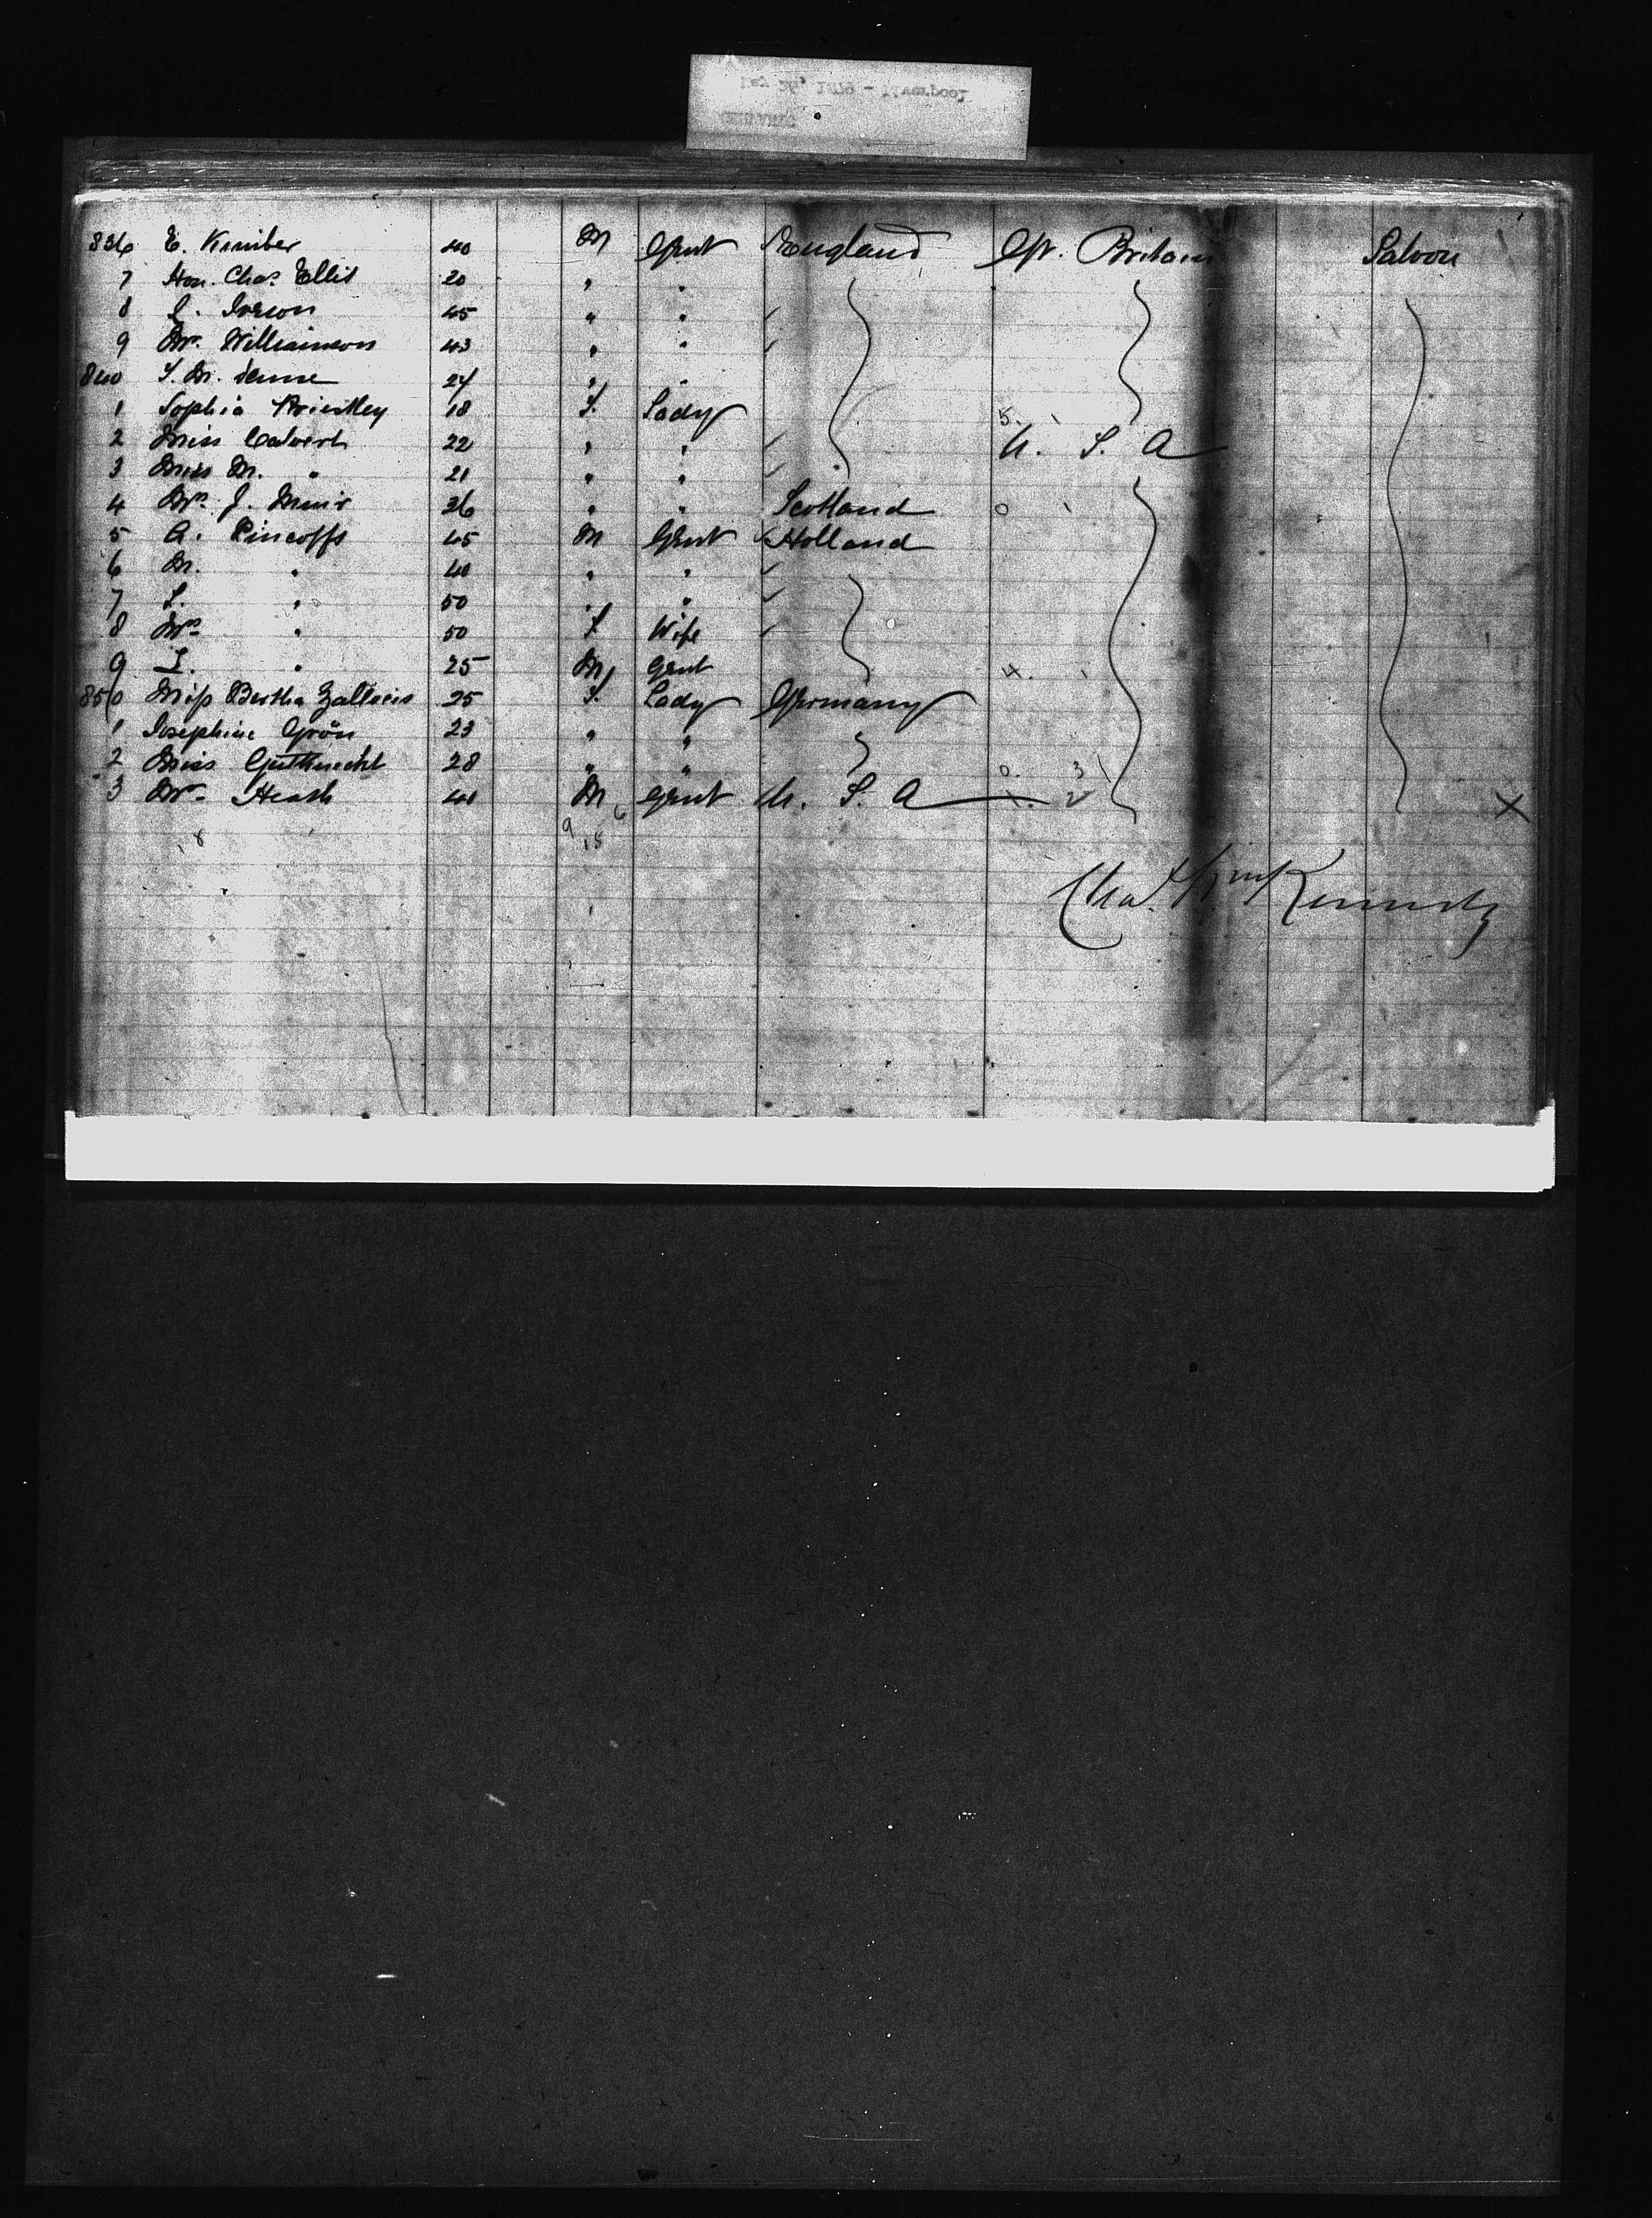 836 E. Kimber 40 M Gent England Gt. Britain Saloon
7 Hon. Chas. Ellis 20 " "
8 J. Iveson 45 " "
9 Mr. Williamson 43 " "
840 S. M. 24 " "
1 Sophia Priestley 18 F. Lady
2 Miss Calvert 22 " " U. S. A
3 Miss M. " 21 " "
4 Mrs. J. Muir 36 " " Scotland
5 A. Pincoffs 45 M Gent Holland
6 M. " 40 " "
7 L. " 50 " "
8 Mrs " 50 F Wife
9 L. " 25 M Gent
850 Miss Bertha 25 F. Lady Germany
1 Josephine Grön 23 " "
2 Miss Gutknecht 28 " "
3 Mr. Heath 41 M Gent U. S. A
Kennedy